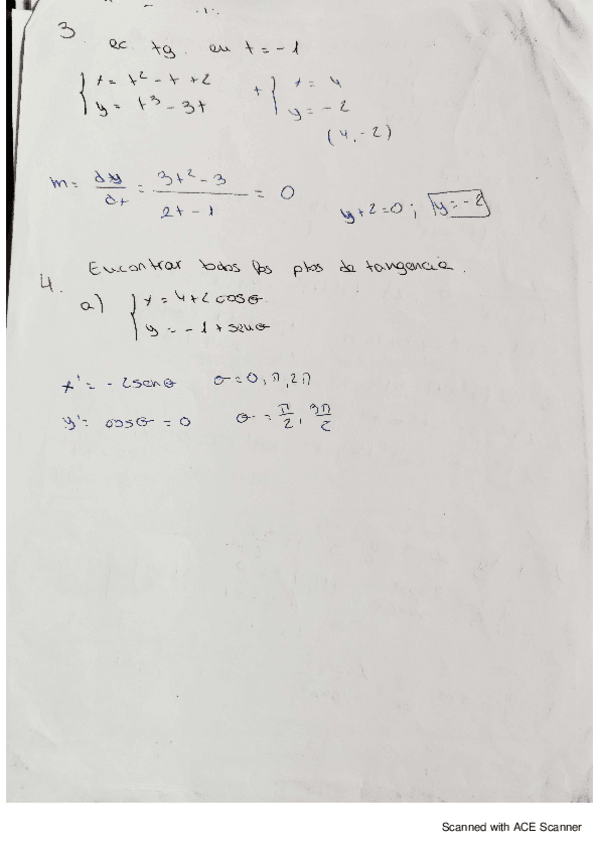 3. ec. tg. en t = -1
{ x = t² - t + 2
y = t³ - 3t
+ { x = 4
y = -2
(4, -2)
m = dy/dt = (3t² - 3)/(2t - 1) = 0
y + 2 = 0 ; y = -2
4. Encontrar todos los ptos de tangencia.
a) { x = 4 + 2 cosθ
y = -1 + senθ
x' = -2senθ θ = 0, π, 2π
y' = cosθ = 0 θ = π/2, 3π/2
Scanned with ACE Scanner